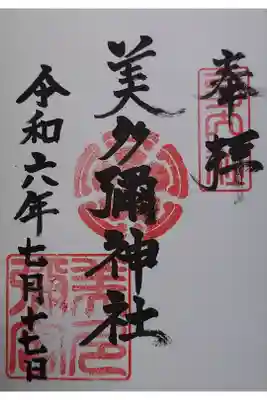 奉拝
美多彌神社
令和六年七月十七日